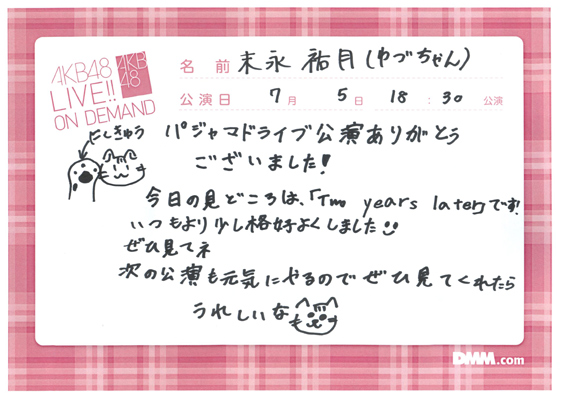 AKB48
LIVE!!
ON DEMAND
AKB
48
名前 末永 祐月(ゆづちゃん)
公演日 7月 5日 18:30 公演
にくきゅう
パジャマドライブ公演ありがとう
ございました!
今日の見どころは、「Two years later」です!
いつもより少し格好よくしました
ぜひ見てネ
次の公演も元気にやるのでぜひ見てくれたら
うれしいな
DMM.com